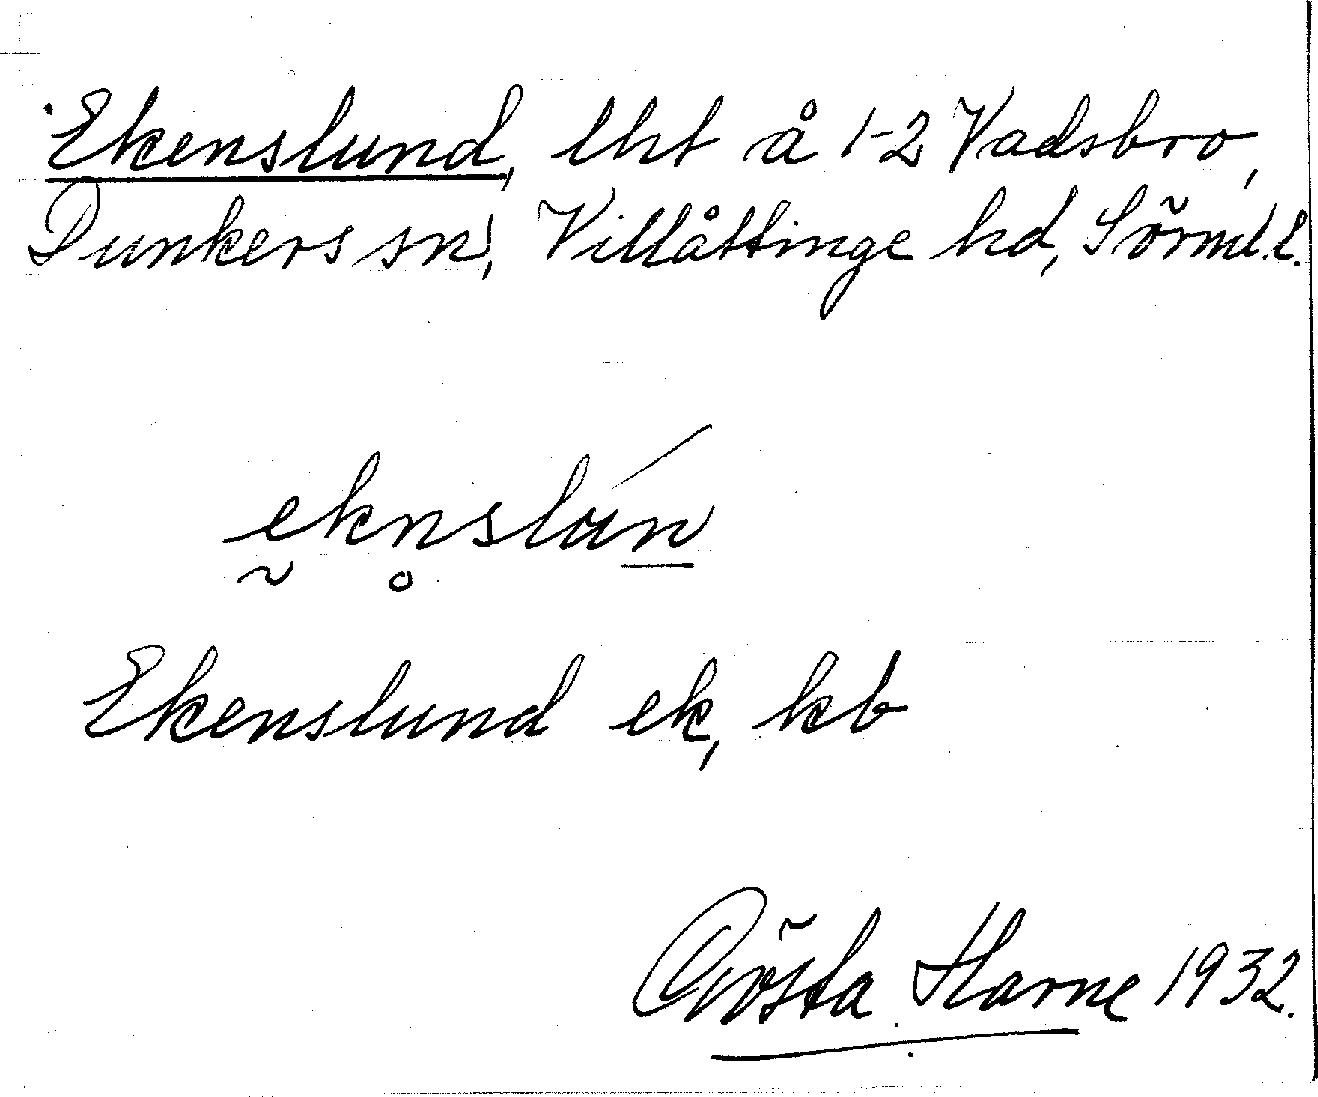 Ekenslund, lht å 1-2 Vadsbro,
Dunkers sn, Villåttinge hd, Sörml. l.
ekn̥slún
Ekenslund ek, kb
Gösta Harne 1932.